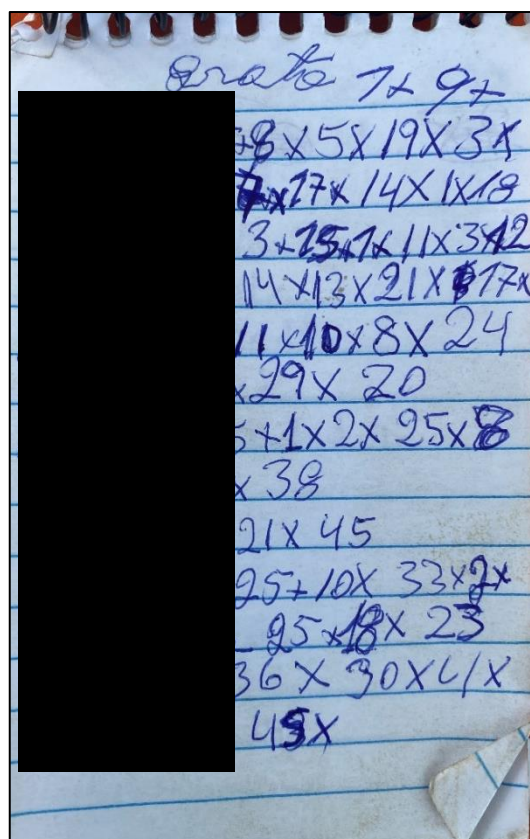 1x 9x
8x5x19x3x
17x14x1x18
3+15x1x11x3x12
14x13x21x 17x
11x10x8x24
x29x20
+1x2x25x8
x38
21x45
25+10x33x2x
25x18x23
36x30x41x
45x